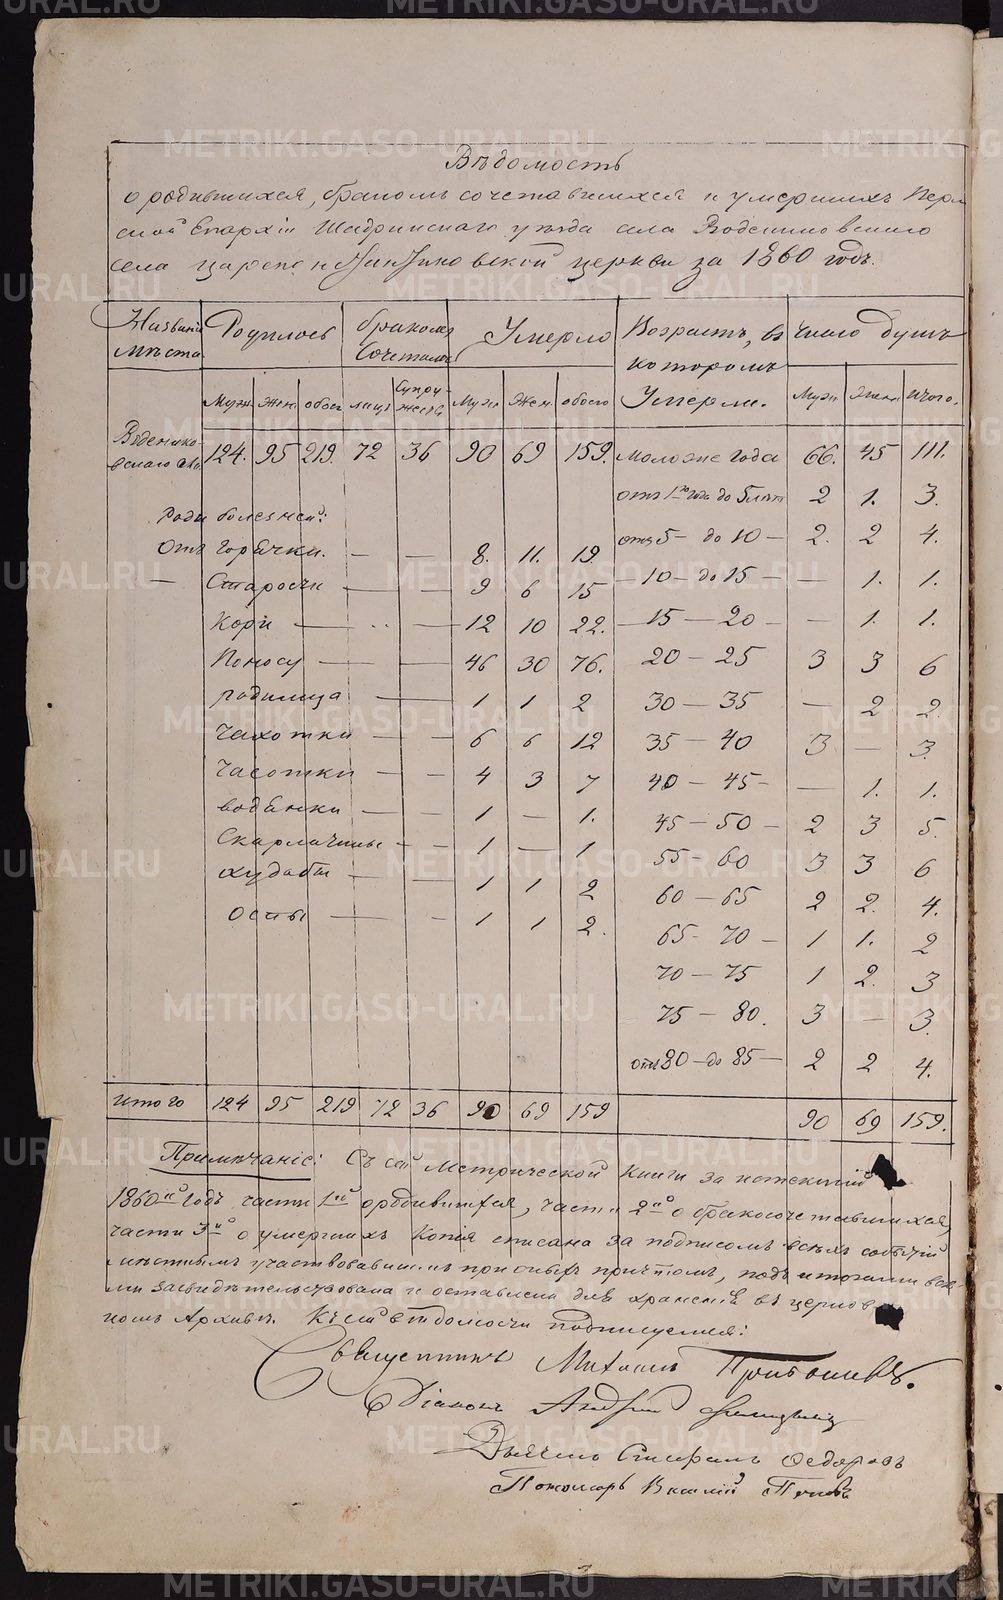 Вѣдомость
о родившихся, бракомъ сочетавшихся и умершихъ Перм
ской Епархіи Шадринскаго уѣзда села Воденниковскаго
села царе церкви за 1860 годъ.
Названіе Родилось бракомъ Умерло Возрастъ, въ Число душъ
мѣста Сочеталось которомъ
Муж. Жен. обоего лицъ Супружествъ Муж. Жен. обоего Умерли. Муж. Жен. Итого.
Воденико-
вскаго села 124. 95 219. 72 36 90 69 159. моложе года 66. 45 111.
отъ 1го года до 5 лѣтъ 2 1. 3.
Роды болезней:
отъ 5 - до 10 - 2. 2 4.
Отъ Горячки. — — 8. 11. 19.
— 10 - до 15 — — 1. 1.
— Старости — — 9 6 15
— 15 — 20 - — 1. 1.
Кори — .. — 12 10 22.
20 — 25 3 3 6
Поносу — — 46 30 76.
30 — 35 — 2 2
родимца — 1 1 2
35 — 40 3 — 3.
Чахотки — — 6 6 12
40 — 45 - — 1. 1.
Часотки — — 4 3 7
45 — 50 — 2 3 5.
водянки — — 1 — 1.
55 — 60 3 3 6
Скарлатины - — 1 — 1
60 — 65 2 2. 4.
худобы — — 1 1 2
65 - 70 — 1 1. 2
Оспы — - 1 1 2.
70 — 75 1 2. 3
75 — 80. 3 — 3.
отъ 80 — до 85 — 2 2 4.
Итого 124 95 219 72 36 90 69 159 90 69 159.
Примѣчаніе: Съ сей Метрической Книги за истекшій
1860й Годъ части 1й о родившихся, части 2й о бракосочетавшихся,
части 3й о умершихъ Копія списана за подписомъ всѣхъ событій
мѣстнымъ участвовавшимъ при причтомъ,
ми засвидѣтельствована и оставлена для храненія въ церков
номъ Архивѣ. Къ сей вѣдомости подписуемся:
Священникъ Михаилъ
Діаконъ Андрей
Дьячекъ Стефанъ Федоровъ
Пономарь Василій Поповъ
METRIKI.GASO-URAL.RU